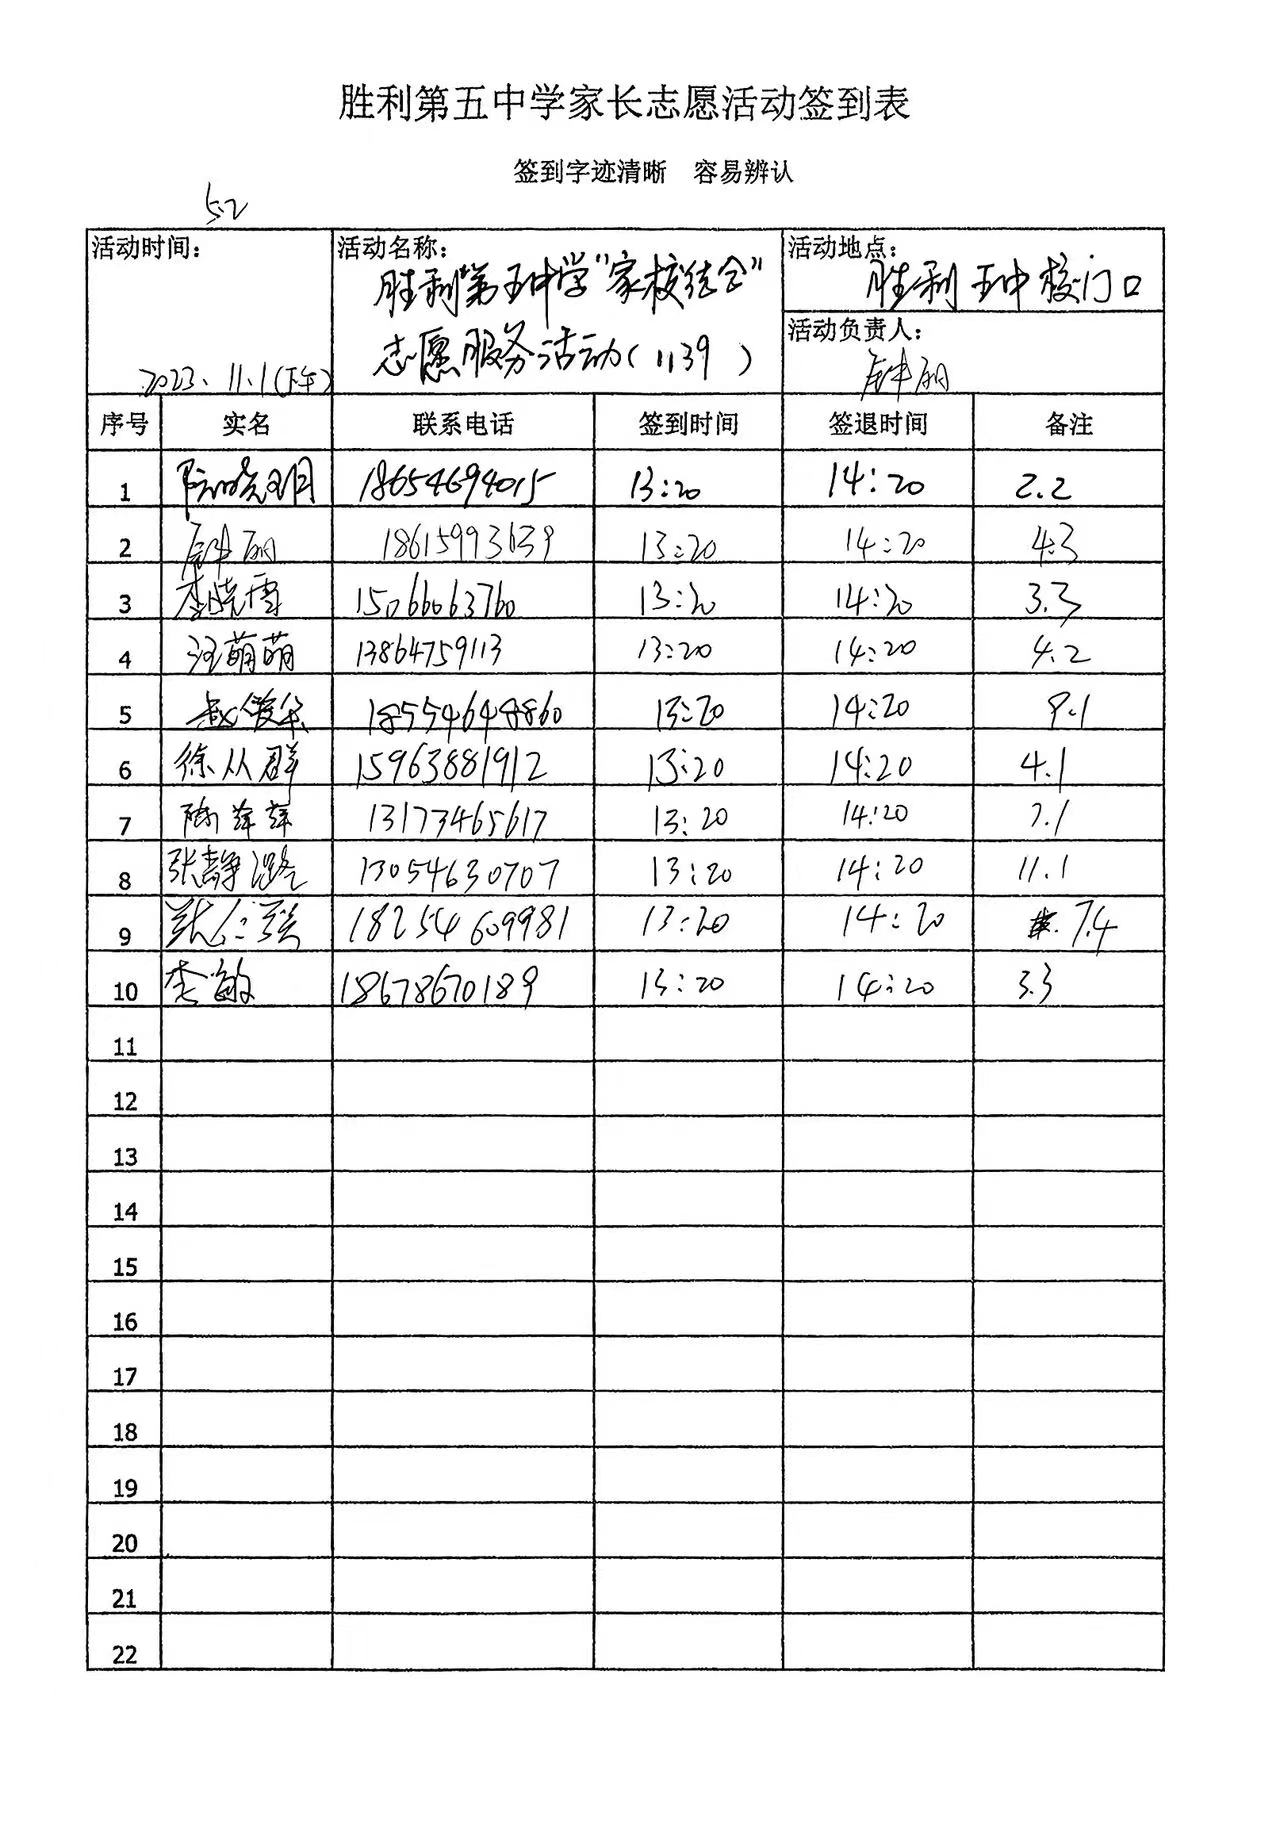 胜利第五中学家长志愿活动签到表
签到字迹清晰 容易辨认
52
活动时间：
2023.11.1(下午)
活动名称：
胜利第五中学"家校结合"
志愿服务活动(1139)
活动地点：
胜利五中校门口
活动负责人：
钟丽
序号 实名 联系电话 签到时间 签退时间 备注
1 18654694015 13:20 14:20 2.2
2 钟丽 18615993639 13:20 14:20 4.3
3 李晓雪 15066063760 13:20 14:20 3.3
4 汪萌萌 13864759113 13:20 14:20 4.2
5 18554648860 13:20 14:20 9.1
6 徐从群 15963881912 13:20 14:20 4.1
7 陈萍萍 13173465617 13:20 14:20 7.1
8 张静 13054630707 13:20 14:20 11.1
9 18254609981 13:20 14:20 7.4
10 李敏 18678670189 13:20 14:20 3.3
11
12
13
14
15
16
17
18
19
20
21
22